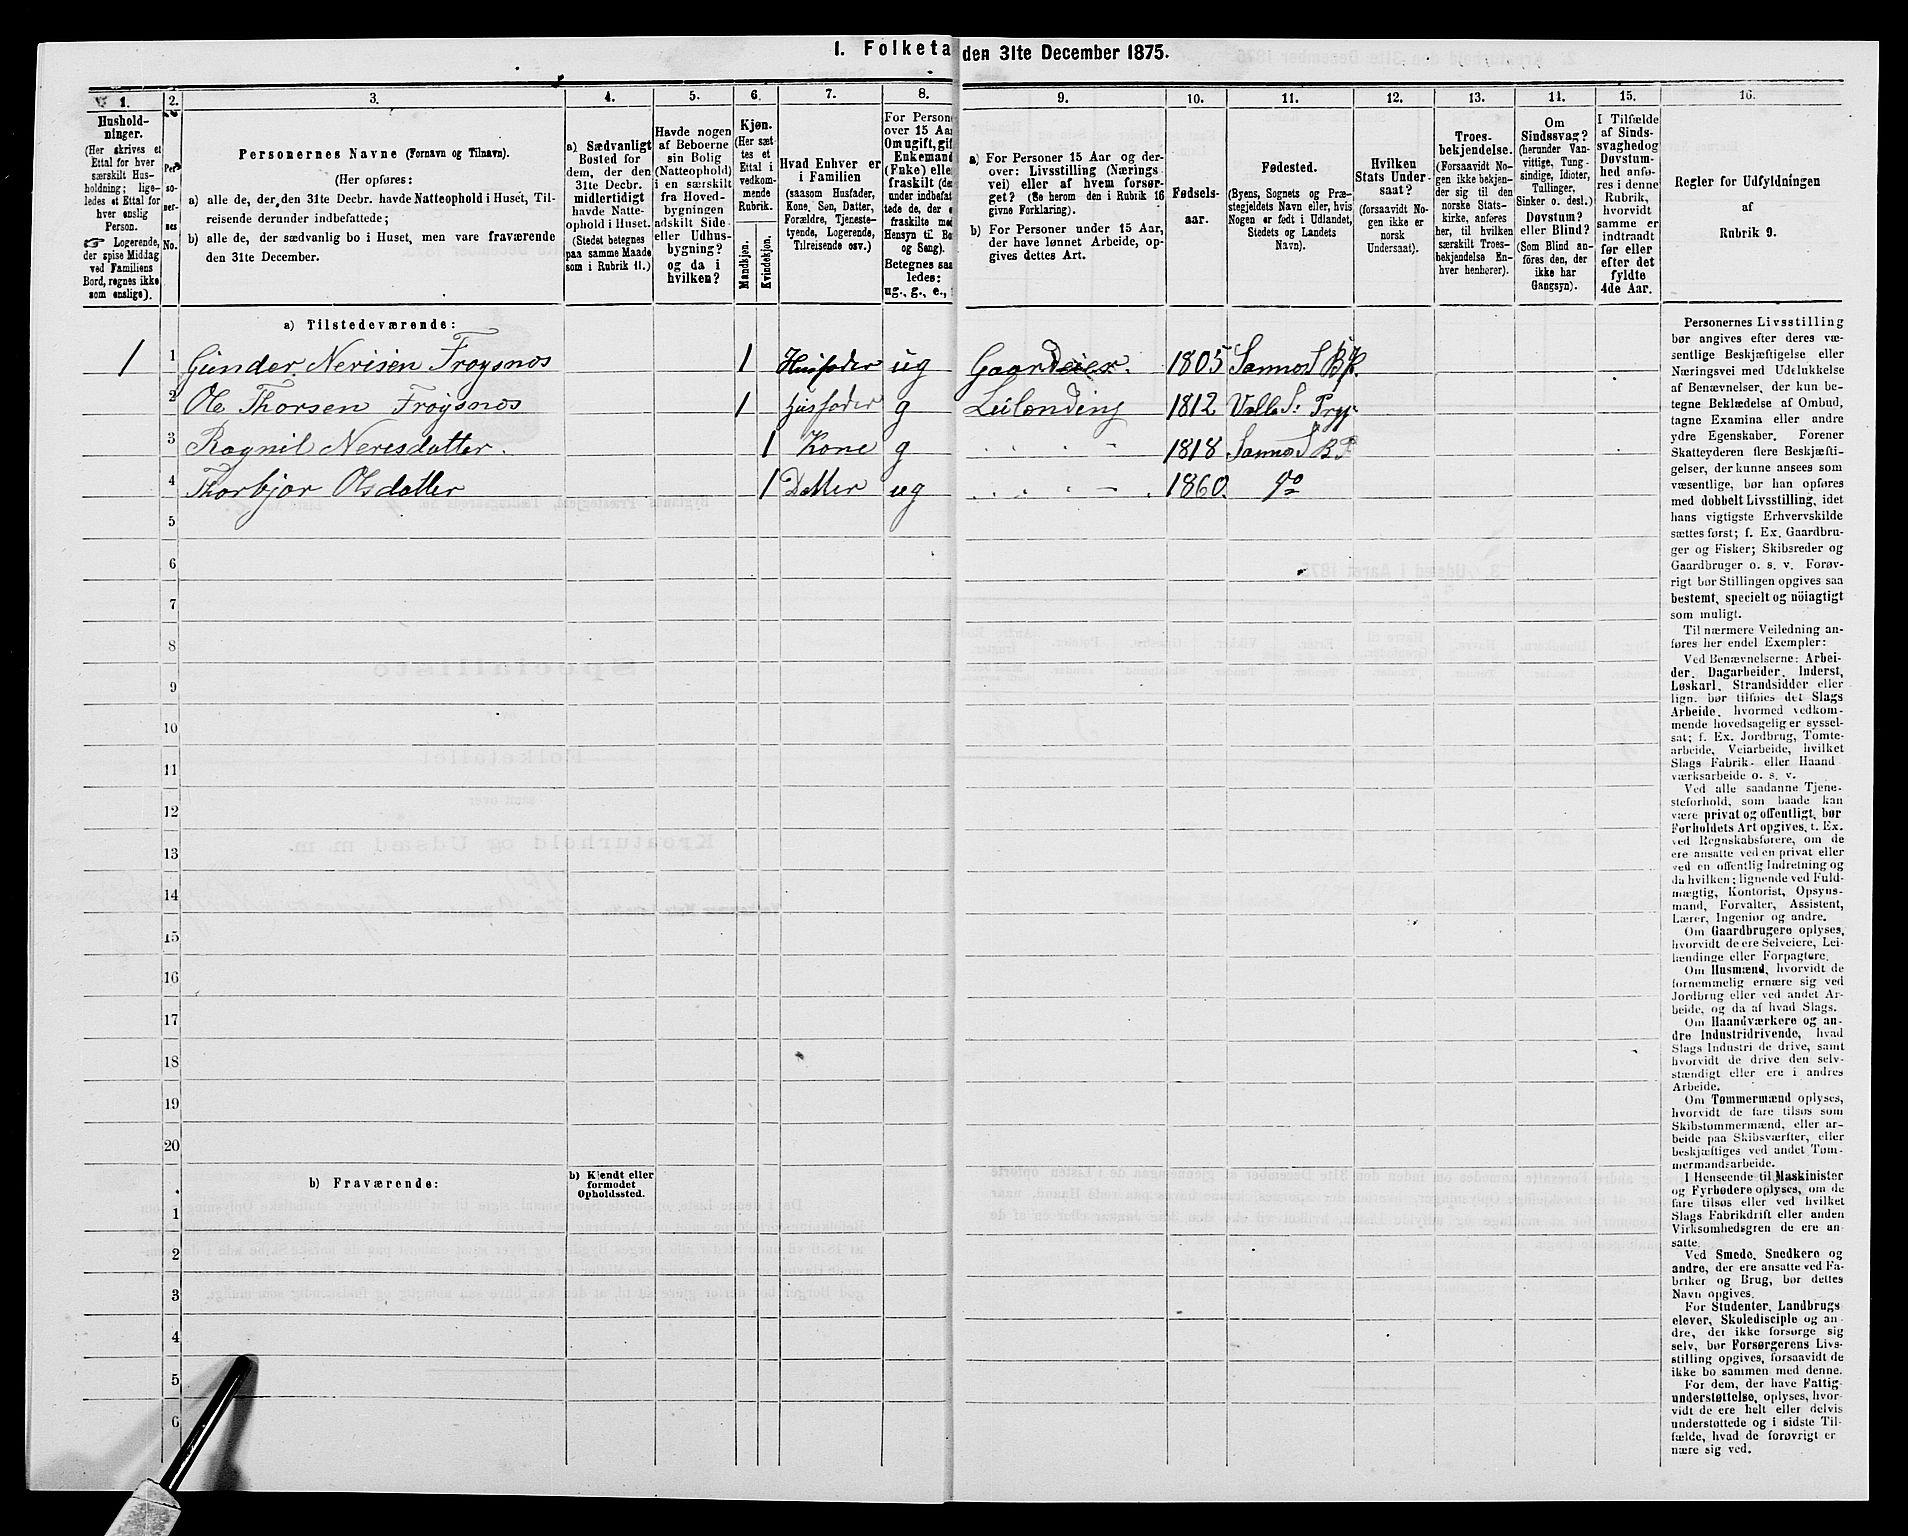 I. Folketa den 31te December 1875.
1. 2. 3. 4. 5. 6. 7. 8. 9. 10. 11. 12. 13. 14. 15. 16.
Hushold-
ninger.
(Her skrives et
Ettal for hver
særskilt Hus-
holdning; lige-
ledes et Ettal for
hver enslig
Person.
☞ Logerende,
der spise Middag
ved Familiens
Bord, regnes ikke
som enslige).
Per-
so-
ner-
nes
No.
Personernes Navne (Fornavn og Tilnavn).
(Her opføres:
a) alle de, der den 31te Decbr. havde Natteophold i Huset, Til-
reisende derunder indbefattede;
b) alle de, der sædvanlig bo i Huset, men vare fraværende
den 31te December.
a) Sædvanligt
Bosted for
dem, der den
31te Decbr.
midlertidigt
havde Natte-
ophold i Huset.
(Stedet betegnes
paa samme Maade
som i Rubrik 11.)
Havde nogen
af Beboerne
sin Bolig
(Natteophold)
i en særskilt
fra Hoved-
bygningen
adskilt Side-
eller Udhus-
bygning?
og da i
hvilken?
Kjøn.
(Her sæt-
tes et
Ettal i
vedkom-
mende
Rubrik.
Mandkjøn.
Kvindekjøn.
Hvad Enhver er
i Familien
(saasom Husfader,
Kone, Søn, Datter,
Forældre, Tjeneste-
tyende, Logerende,
Tilreisende osv.)
For Persone
over 15 Aar
Om ugift, gift
Enkemand
(Enke) elle
fraskilt (de
under indbefat
tede de, der e
fraskilte med
Hensyn til Bo
og Seng).
Betegnes saa
ledes:
ug., g., e.,
a) For Personer 15 Aar og der-
over: Livsstilling (Nærings
vei) eller af hvem forsør-
get? (Se herom den i Rubrik 16
givne Forklaring).
b) For Personer under 15 Aar,
der have lønnet Arbeide, op-
gives dettes Art.
Fødsels-
aar.
Fødested.
(Byens, Sognets og Præ-
stegjeldets Navn eller, hvis
Nogen er født i Udlandet,
Stedets og Landets
Navn).
Hvilken
Stats Under-
saat?
(forsaavidt No-
gen ikke er
norsk
Undersaat).
Troes-
bekjendelse.
(Forsaavidt No-
gen ikke bekjen-
der sig til den
norske Stats-
kirke, anføres
her, til hvilken
særskilt Troes-
bekjendelse En-
hver henhører).
Om
Sindssvag?
(herunder Van-
vittige, Tung-
sindige, Idioter,
Tullinger,
Sinker o. desl.)
Døvstum?
eller Blind?
(Som Blind an-
føres den, der
ikke har
Gangsyn).
I Tilfælde
af Sinds-
svaghed og
Døvstum-
hed anfø-
res i denne
Rubrik,
hvorvidt
samme er
indtraadt
før eller
efter det
fyldte
4de Aar.
Regler for Udfyldningen
af
Rubrik 9.
a) Tilstedeværende:
1 1 Gunder Nerisen Froysnos 1 Husfader ug Gaardeier. 1805 Sannos S BP.
2 Ole Thorsen Froysnos 1 Husfader g Leilænding 1812 Valle S:
3 Ragnil Nerisdatter. 1 Kone g 1818 Sannos S BP
4 Thorbjor Olsdatter 1 Datter ug 1860. do
5
6
7
8
9
10
11
12
13
14
15
16
17
18
19
20
b) Fraværende:
b) Kjendt eller
formodet
Opholdssted.
1
2
3
4
5
6
Personernes Livsstilling
bør angives efter deres væ-
sentlige Beskjæftigelse eller
Næringsvei med Udelukkelse
af Benævnelser, der kun be-
tegne Beklædelse af Ombud,
tagne Examina eller andre
ydre Egenskaber. Forener
Skatteyderen flere Beskjæfti-
gelser, der kunne ansees som
væsentlige, bør han opføres
med dobbelt Livsstilling, idet
hans vigtigste Erhvervskilde
sættes først; f. Ex. Gaardbru-
ger og Fisker; Skibsreder og
Gaardbruger o. s. v. Forøv-
rigt bør Stillingen opgives saa
bestemt, specielt og nöiagtigt
som muligt.
Til nærmere Veiledning an-
føres her endel Exempler:
Ved Benævnelserne: Arbei-
der, Dagarbeider, Inderst,
Løskarl, Strandsidder eller
lign. bør tilføies det Slags
Arbeide, hvormed vedkom-
mende hovedsagelig er syssel-
sat; f. Ex. Jordbrug, Tomte-
arbeide, Veiarbeide, hvilket
Slags Fabrik- eller Haand
værksarbeide o. s. v.
Ved alle saadanne Tjene-
steforhold, som baade kan
være privat og offentligt, bør
Forholdets Art opgives, t. Ex.
ved Regnskabsførere, om de
ere ansatte ved en privat eller
ved en offentlig Indretning og
da hvilken; lignende ved Fuld-
mægtig, Kontorist, Opsyns-
mand, Forvalter, Assistent,
Lærer, Ingeniør og andre.
Om Gaardbrugere oplyses,
hvorvidt de ere Selveiere, Lei-
lændinge eller Forpagtere.
Om Husmænd, hvorvidt de
fornemmelig ernære sig ved
Jordbrug eller ved andet Ar-
beide, og da af hvad Slags.
Om Haandværkere og an-
dre Industridrivende, hvad
Slags Industri de drive, samt
hvorvidt de drive den selv-
stændigt eller ere i andres
Arbeide.
Om Tømmermænd oplyses,
hvorvidt de fare tilsøs som
Skibstømmermænd, eller ar-
beide paa Skibsværfter, eller
beskjæftiges ved andet Tøm-
mermandsarbeide.
I Henseende til Maskinister
og Fyrbødere oplyses, om de
fare tilsøs eller ved hvilket
Slags Fabrikdrift eller anden
Virksomhedsgren de ere an-
satte.
Ved Smede, Snedkere og
andre, der ere ansatte ved Fa-
briker og Brug, bør dettes
Navn opgives.
For Studenter, Landbrugs
elever, Skoledisciple og an-
dre, der ikke forsørge sig
selv, bør Forsørgerens Livs-
stilling opgives, forsaavidt de
ikke bo sammen med denne.
For dem, der have Fattig-
understøttelse, oplyses, hvor-
vidt de ere helt eller delvis
understøttede og i sidste Til-
fælde, hvad de forøvrigt er
nære sig ved.